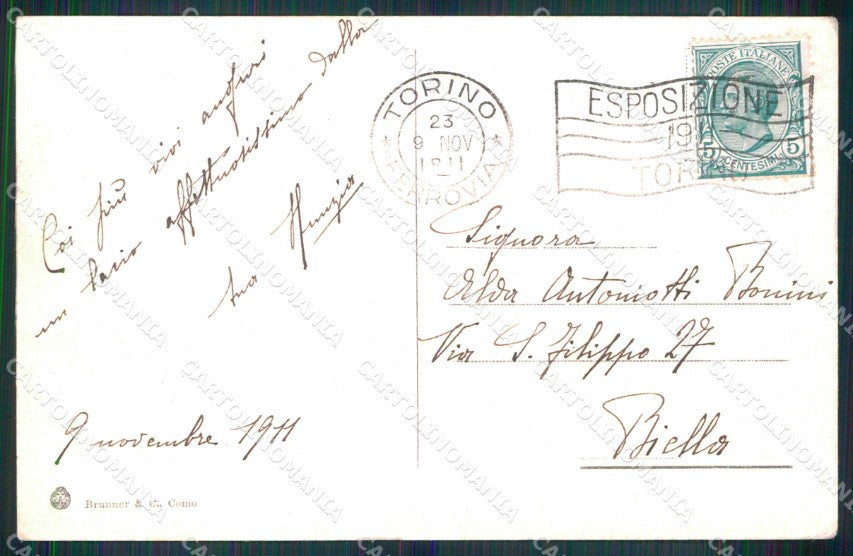 Coi più vivi auguri
un bacio affettuosissimo dalla
tua Nunzia
9 novembre 1911
Brunner & C., Como
TORINO
23
9 NOV
1911
FERROVIA
ESPOSIZIONE
19
TORINO
POSTE ITALIANE
5 CENTESIMI 5
Signora
Alda Antoniotti Bonini
Via S. Filippo 27
Biella
CARTOLINOMANIA